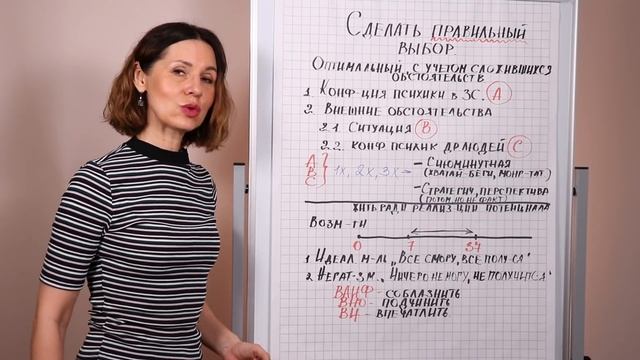 Сделать правильный
выбор
Оптимальный, с учетом сложившихся
обстоятельств
1. Конф-ция психики в ЗС. А
2. Внешние обстоятельства
2.1 Ситуация В
2.2. Конф психик др людей С
А
В
С
1х, 2х, 3х
- Сиюминутная
(хватай-беги,
- Стратегич, перспектива
(потом, но не факт)
Жить ради реализации потенциала
Возм-ти
0 7 34
1 Идеал м-ль „Все смогу, все получ-ся"
2 Негат-з м. „Ничего не могу, не получится"
- соблазнить
- подчинить
- впечатлить